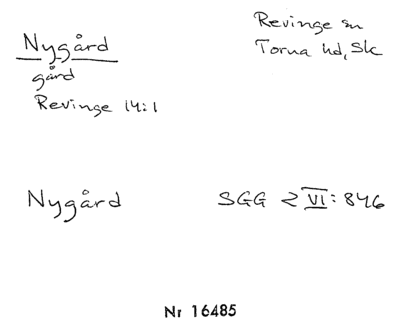 Nygård
gård
Revinge 14:1
Revinge sn
Torna hd, Sk
Nygård
SGG 2 VI: 846
Nr 16485